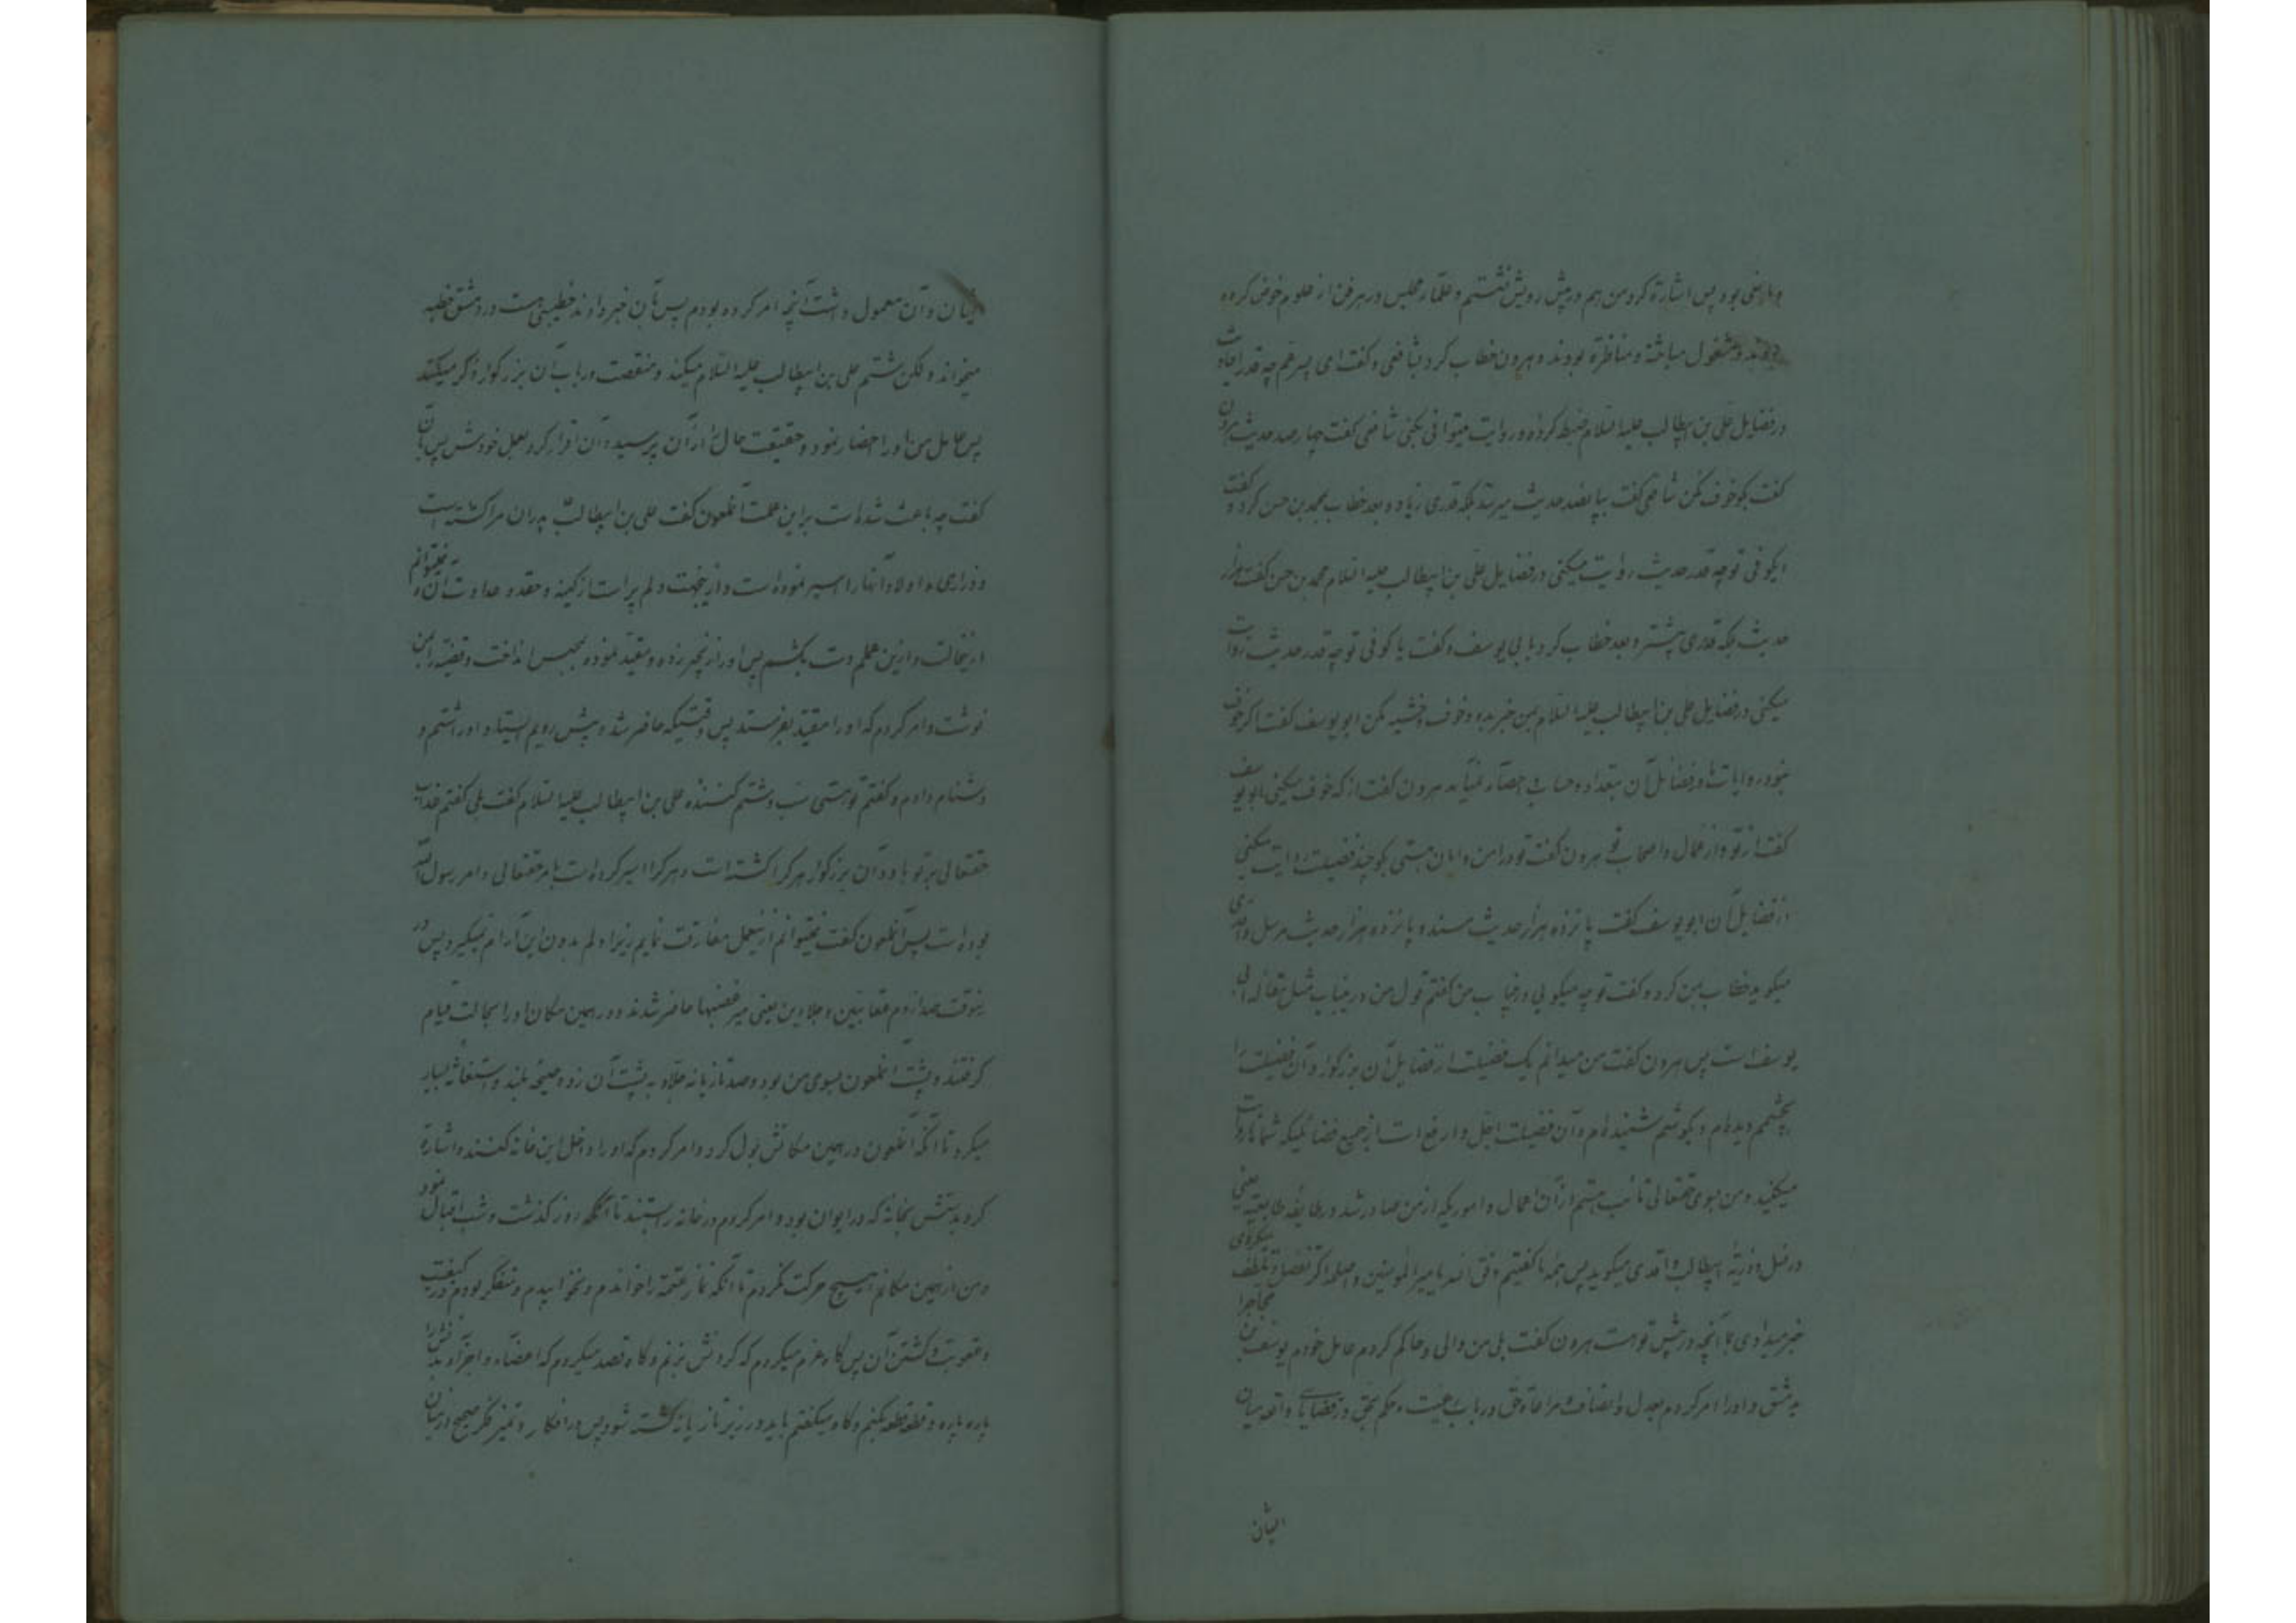 و هارضی بود پس اشاره کرد من هم در پیش رویش نشستم و علمآء مجلس در هر فن از علوم خوض کرده
بودند و مشغول مباحثه و مناظره بودند و هرون خطاب کرد بشافعی و گفت ای پسر عم چه قدر احادیث
در فضایل علی بن ابیطالب علیه السلام ضبط کرده و روایت میتوانی بکنی شافعی گفت چهار صد حدیث هرون
گفت بکو خوف مکن شافعی گفت بپانصد حدیث میرسد بلکه قدری زیاد و بعد خطاب بمحمد بن حسن کرد و گفت
ایکوفی تو چه قدر حدیث روایت میکنی در فضایل علی بن ابیطالب علیه السلام محمد بن حسن گفت هزار
حدیث بلکه قدری بیشتر و بعد خطاب کرد بابی یوسف و گفت یا کوفی تو چه قدر حدیث روایت
میکنی در فضایل علی بن ابیطالب علیه السلام بمن خبر بده و خوف و خشیه مکن ابو یوسف گفت اگر خوف
نبود روایات ما و فضایل آن بتعداد و حساب و احصآء نمیآید هرون گفت از که خوف میکنی ابو یوسف
گفت از تو و از عمال و اصحاب تو هرون گفت تو در امن و امان هستی بکو چند فضیلت روایت میکنی
از فضایل آن ابو یوسف گفت پانزده هزار حدیث مسند و پانزده هزار حدیث مرسل واقدی
میکوید خطاب بمن کرد و گفت تو چه میکوئی در این باب من گفتم قول من در این باب مثل مقاله ابی
یوسف است پس هرون گفت من میدانم یک فضیلت از فضایل آن بزرگوار و آن فضیلت را
بچشمم دیده‌ام و بکوشم شنیده‌ام و آن فضیلت اجل و ارفع است از جمیع فضایلیکه شماها روایت
میکنید و من بسوی حقتعالی تائب هستم از آن اعمال و اموریکه از من صادر شد در طایفه طالبیه یعنی
در نسل و ذریّه ابیطالب واقدی میکوید پس همه ما گفتیم وفق الله یا امیر المؤمنین و اصلحه اگر تفضل و تلطف میکردی
خبر میدادی ما را بآنچه در پیش تو است هرون گفت بلی من والی و حاکم کردم عامل خودم یوسف بن حجاج را
به دمشق و او را امر کردم بعدل و انصاف و مراعات حق در باب رعیت و حکم بحق در قضایای واقعه میان
ایشان
ایشان و آن معمول داشت آنچه امر کرده بودم پس بآن خبر دادند خطیبی هست در دمشق خطبه
میخواند ولکن شتم علی بن ابیطالب علیه السلام میکند و منقصت در باب آن بزرگوار ذکر میکند
پس عامل من او را احضار نمود و حقیقت حال را از آن پرسید و آن اقرار کرد بعمل خودش پس بآن
گفت چه باعث شده است بر این عملت آنملعون گفت علی بن ابیطالب پدران مرا کشته است
و ذراری و اولاد آنها را اسیر نموده است و از اینجهت دلم پر است از کینه و حقد و عداوت آن و نمیتوانم
از اینحالت و از این عملم دست بکشم پس او را زنجیر زده و مقید نموده بحبس انداخت و قضیه را بمن
نوشت و امر کردم که او را مقید بفرستد پس وقتیکه حاضر شد و پیش رویم ایستاد او را شتم و
دشنام دادم و گفتم تو هستی سب و شتم کننده علی بن ابیطالب علیه السلام گفت بلی گفتم عذاب
حقتعالی بر تو باد و آن بزرگوار هر که را کشته است و هر که را اسیر کرده است بامر حقتعالی و امر رسول الله
بوده است پس آنملعون گفت نمیتوانم از اینعمل مفارقت نمایم زیرا دلم بدون این آرام نمیگیرد پس در
اینوقت صدا زدم عقابین و جلادین یعنی میر غضبها حاضر شدند و در همین مکان او را بحالت قیام
گرفتند و پشت آنملعون بسوی من بود و صد تازیانه جلاد به پشت آن زد و صیحه بلند و استغاثه بسیار
میکرد تا آنکه آنملعون در همین مکانش بول کرد و امر کردم که او را داخل این خانه کنند و اشاره
کرد بدستش بخانه که در ایوان بود و امر کردم در خانه را بستند تا آنکه روز گذشت و شب اقبال نمود
و من از همین مکانم هیچ حرکت نکردم تا آنکه نماز عتمه را خواندم و نخوابیدم و متفکر بودم در کیفیت
و عقوبت و کشتن آن پس گاه عزم میکردم که گردنش بزنم و گاه قصد میکردم که اعضآء و اجزآء بدنش را
پاره پاره و قطعه قطعه بکنم و گاه میگفتم باید در زیر تازیانه کشته شود پس در افکار و تمیز فکر صحیح در میان